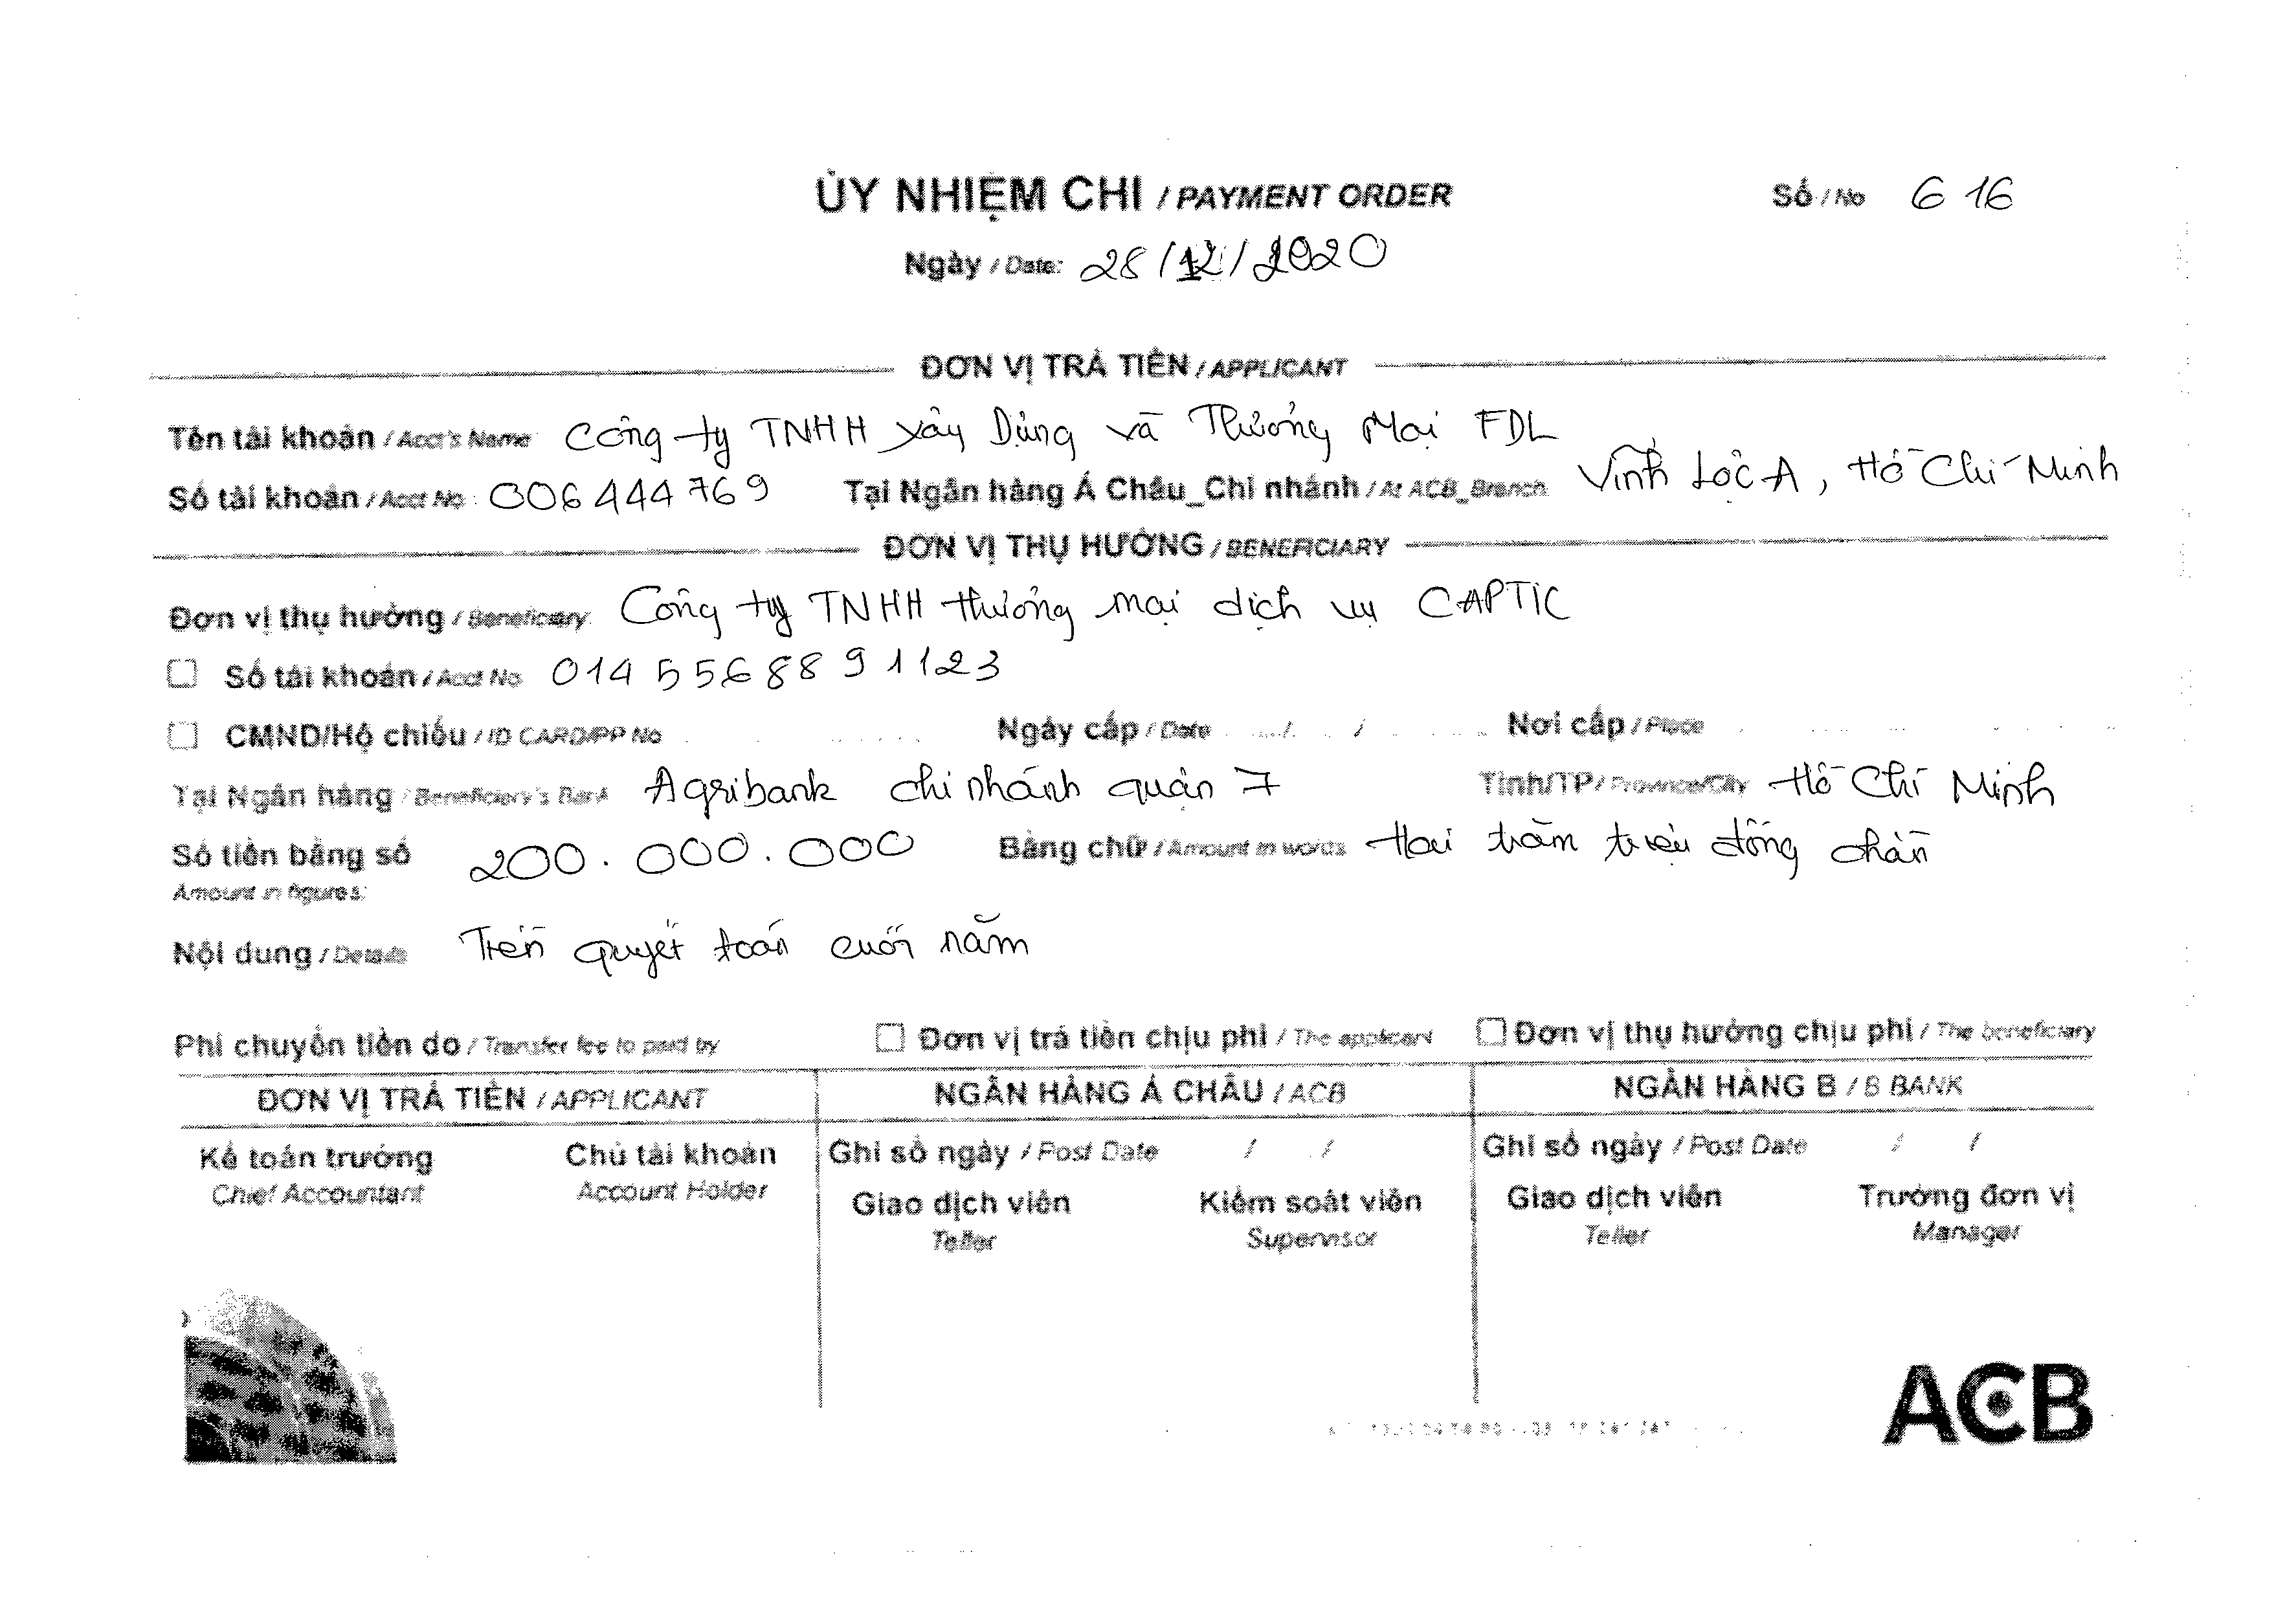 ỦY NHIỆM CHI / PAYMENT ORDER Số / No 616
Ngày / Date: 28/12/2020
ĐƠN VỊ TRẢ TIỀN / APPLICANT
Tên tài khoản / Acct's Name Công ty TNHH Xây Dựng và Thương Mại FDL
Số tài khoản / Acct No : 006444769 Tại Ngân hàng Á Châu_Chi nhánh / At ACB_Branch Vĩnh Lộc A, Hồ Chí Minh
ĐƠN VỊ THỤ HƯỞNG / BENEFICIARY
Đơn vị thụ hưởng / Beneficiary: Công ty TNHH thương mại dịch vụ CAPTIC
Số tài khoản / Acct No 0145568891123
CMND/Hộ chiếu / ID CARD/PP No Ngày cấp / Date / / Nơi cấp / Place
Tại Ngân hàng / Beneficiary's Bank Agribank chi nhánh quận 7 Tỉnh/TP / Province/City Hồ Chí Minh
Số tiền bằng số 200.000.000 Bằng chữ / Amount in words Hai trăm triệu đồng chẵn
Amount in figures:
Nội dung / Details Tiền quyết toán cuối năm
Phí chuyển tiền do / Transfer fee to paid by Đơn vị trả tiền chịu phí / The applicant Đơn vị thụ hưởng chịu phí / The beneficiary
ĐƠN VỊ TRẢ TIỀN / APPLICANT NGÂN HÀNG Á CHÂU / ACB NGÂN HÀNG B / B BANK
Kế toán trưởng Chủ tài khoản Ghi sổ ngày / Post Date / / Ghi sổ ngày / Post Date / /
Chief Accountant Account Holder Giao dịch viên Kiểm soát viên Giao dịch viên Trưởng đơn vị
Teller Supervisor Teller Manager
ACB